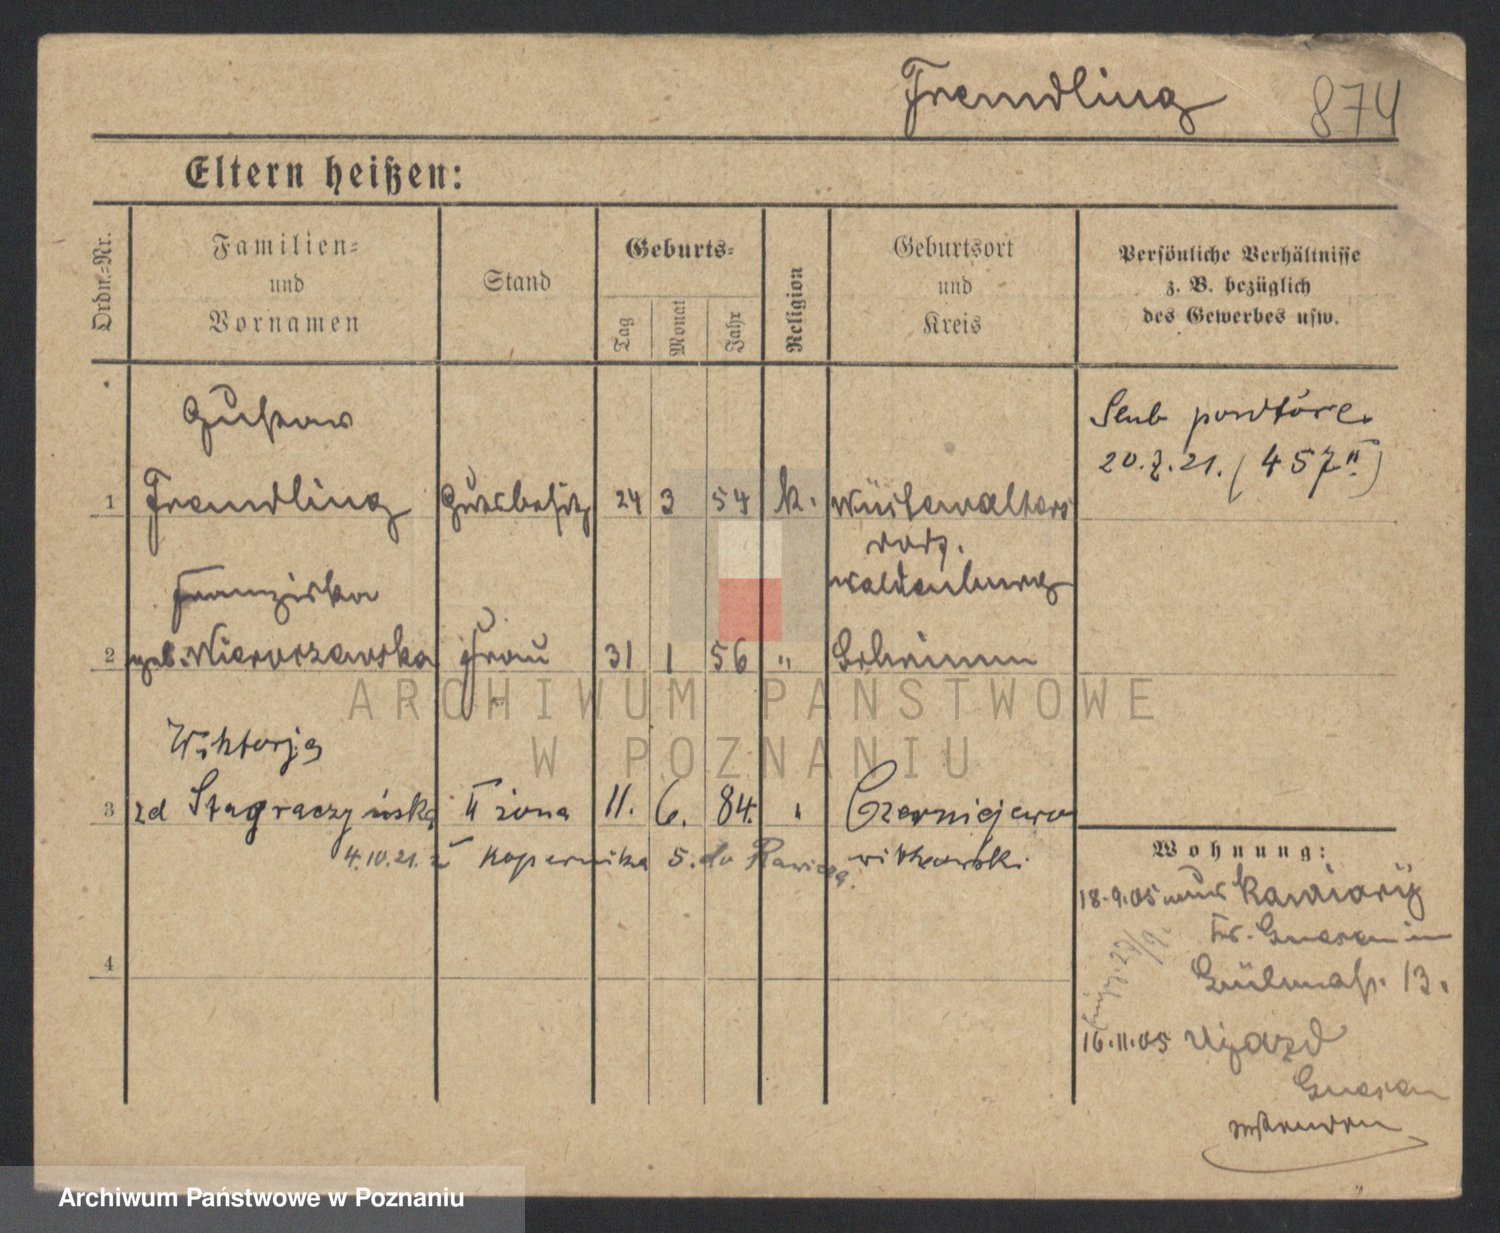 Fremdling 874
Eltern heißen:
Ordn.-Nr.
Familien-
und
Vornamen
Stand
Geburts-
Tag
Monat
Jahr
Religion
Geburtsort
und
Kreis
Persönliche Verhältnisse
z. B. bezüglich
des Gewerbes usw.
Gustav
1 Fremdling Gutsbesitz 24 3 54 k. Wüstewaltersdorf
Waldenburg
Ślub powtórz.
20.7.21. (457 II)
Franziska
2 geb. Frau 31 1 56 "
Wiktorja
3 zd Stagraczyńska II żona 11. 6. 84. " Czerniejewo
4.10.21. z Kopernika 5. do Rawicza. witkowski
4
Wohnung:
18.9.05 aus
Kr. Gnesen in
13.
16.11.05 Ujazd
Gnesen
ARCHIWUM PAŃSTWOWE
W POZNANIU
Archiwum Państwowe w Poznaniu